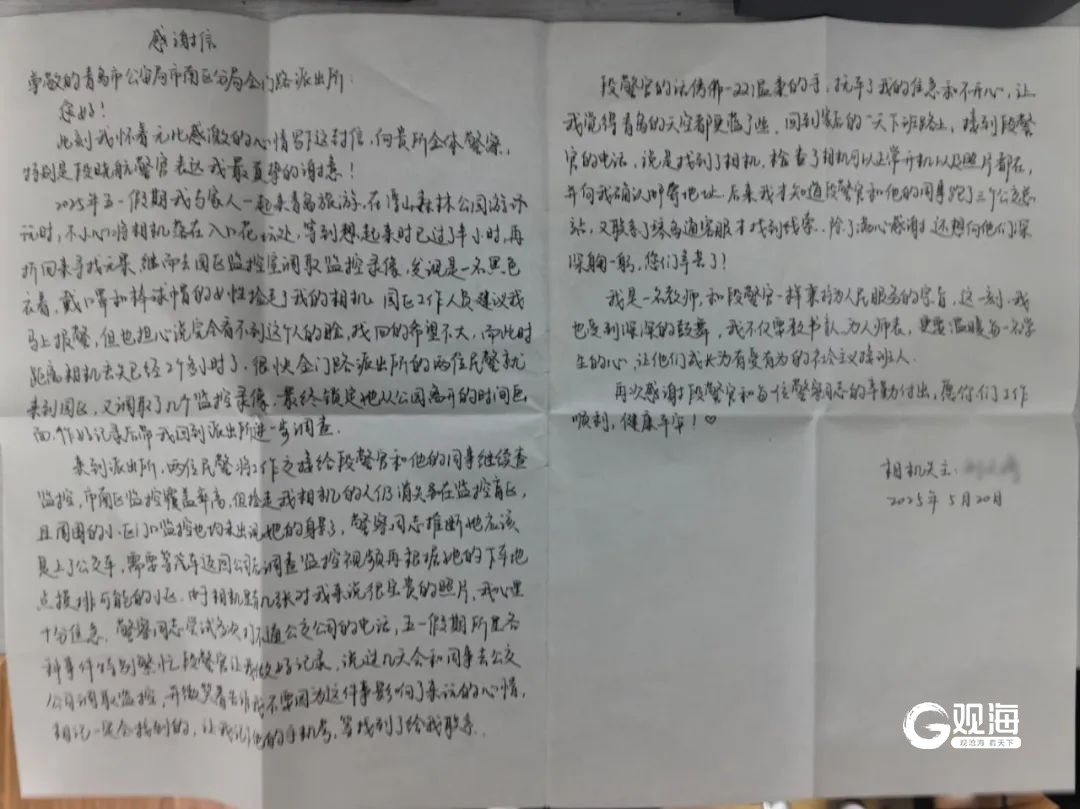 感谢信
尊敬的青岛市公安局市南区分局金门路派出所:
您好!
此刻我怀着无比感激的心情写下这封信,向贵所全体警察,
特别是段晓航警官表达我最真挚的谢意!
2025年五一假期我与家人一起来青岛旅游,在浮山森林公园游
玩时,不小心将相机落在入口花坛处,等到想起来时已过了半小时,再
折回来寻找无果,继而去园区监控室调取监控录像,发现是一名黑色
衣着,戴口罩和棒球帽的女性捡走了我的相机 园区工作人员建议我
马上报警,但也担心说完全看不到这个人的脸,找回的希望不大,而此时
距离相机丢失已经2个多小时了.很快金门路派出所的两位民警就
来到园区,又调取了几个监控录像,最终锁定她从公园离开的时间区
间.作好记录后带我回到派出所进一步调查.
来到派出所,两位民警将工作交接给段警官和他的同事继续查
监控,市南区监控覆盖率高,但捡走我相机的人仍消失在监控盲区,
且周围的小区门口监控也均未出现她的身影了,警察同志推断她应该
是上了公交车,需要等汽车返回公司后调查监控视频再根据她的下车地
点摸排可能的小区.由于相机里有几张对我来说很宝贵的照片,我心里
十分焦急,警察同志尝试多次打不通公交公司的电话,五一假期所里各
种事件特别繁忙 段警官让我做好记录,说这几天会和同事去公交
公司调取监控,并微笑着告诉我不要因为这件事影响了来玩的心情,
相机一定会找到的,让我记他的手机号,等找到了给我联系.
段警官的话仿佛一双温柔的手,抚平了我的焦急和不开心,让
我觉得青岛的天空都更蓝了些.回到家后的一天下班路上,接到段警
官的电话,说是找到了相机,检查了相机可以正常开机以及照片都在,
并向我确认邮寄地址.后来我才知道段警官和他的同事跑了三个公交总
站,又联系了琴岛通客服才找到线索.除了满心感谢还想向他们深
深鞠一躬,您们辛苦了!
我是一名教师,和段警官一样秉持为人民服务的宗旨,这一刻,我
也受到深深的鼓舞,我不仅要教书育人,为人师表,更要温暖每一名学
生的心,让他们成长为有爱有为的社会主义接班人.
再次感谢段警官和每一位警察同志的辛勤付出,愿你们工作
顺利,健康平安!♡
相机失主:
2025年5月20日
观海
观沧海 看天下